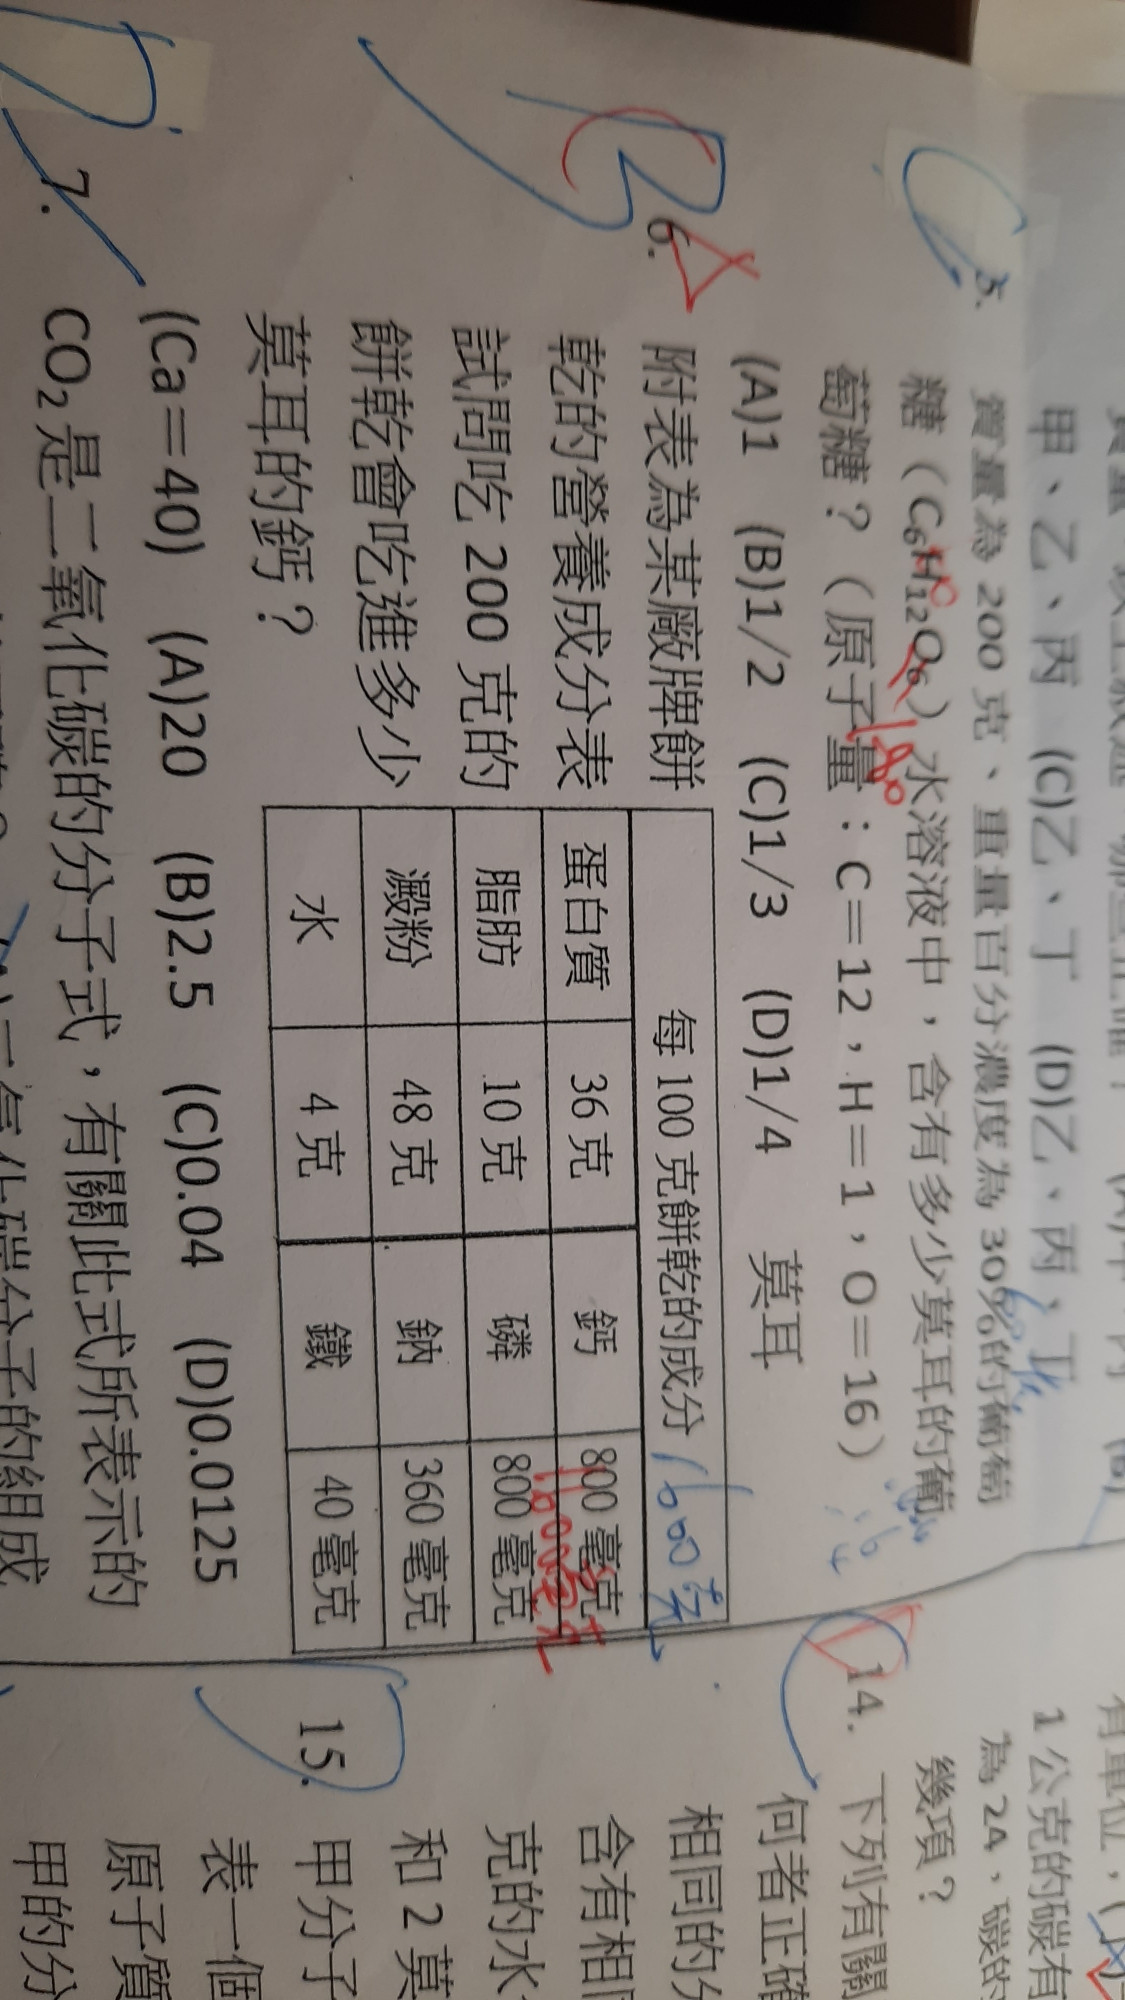 甲、乙、丙 (C)乙、丁 (D)乙、丙、丁
5. 質量為 200 克、重量百分濃度為 30%的葡萄
糖（C₆H₁₂O₆）水溶液中，含有多少莫耳的葡
萄糖？（原子量：C＝12，H＝1，O＝16）
180
(A)1 (B)1/2 (C)1/3 (D)1/4 莫耳
6. 附表為某廠牌餅
乾的營養成分表
試問吃 200 克的
餅乾會吃進多少
莫耳的鈣？
每 100 克餅乾的成分
蛋白質 36 克 鈣 800 毫克
脂肪 10 克 磷 800 毫克
澱粉 48 克 鈉 360 毫克
水 4 克 鐵 40 毫克
(Ca＝40) (A)20 (B)2.5 (C)0.04 (D)0.0125
7. CO₂是二氧化碳的分子式，有關此式所表示的
1 公克的碳有
為 24，碳的
幾項？
14. 下列有關
何者正確
相同的分
含有相同
克的水
和 2 莫
15. 甲分子
表一個
原子質
甲的分